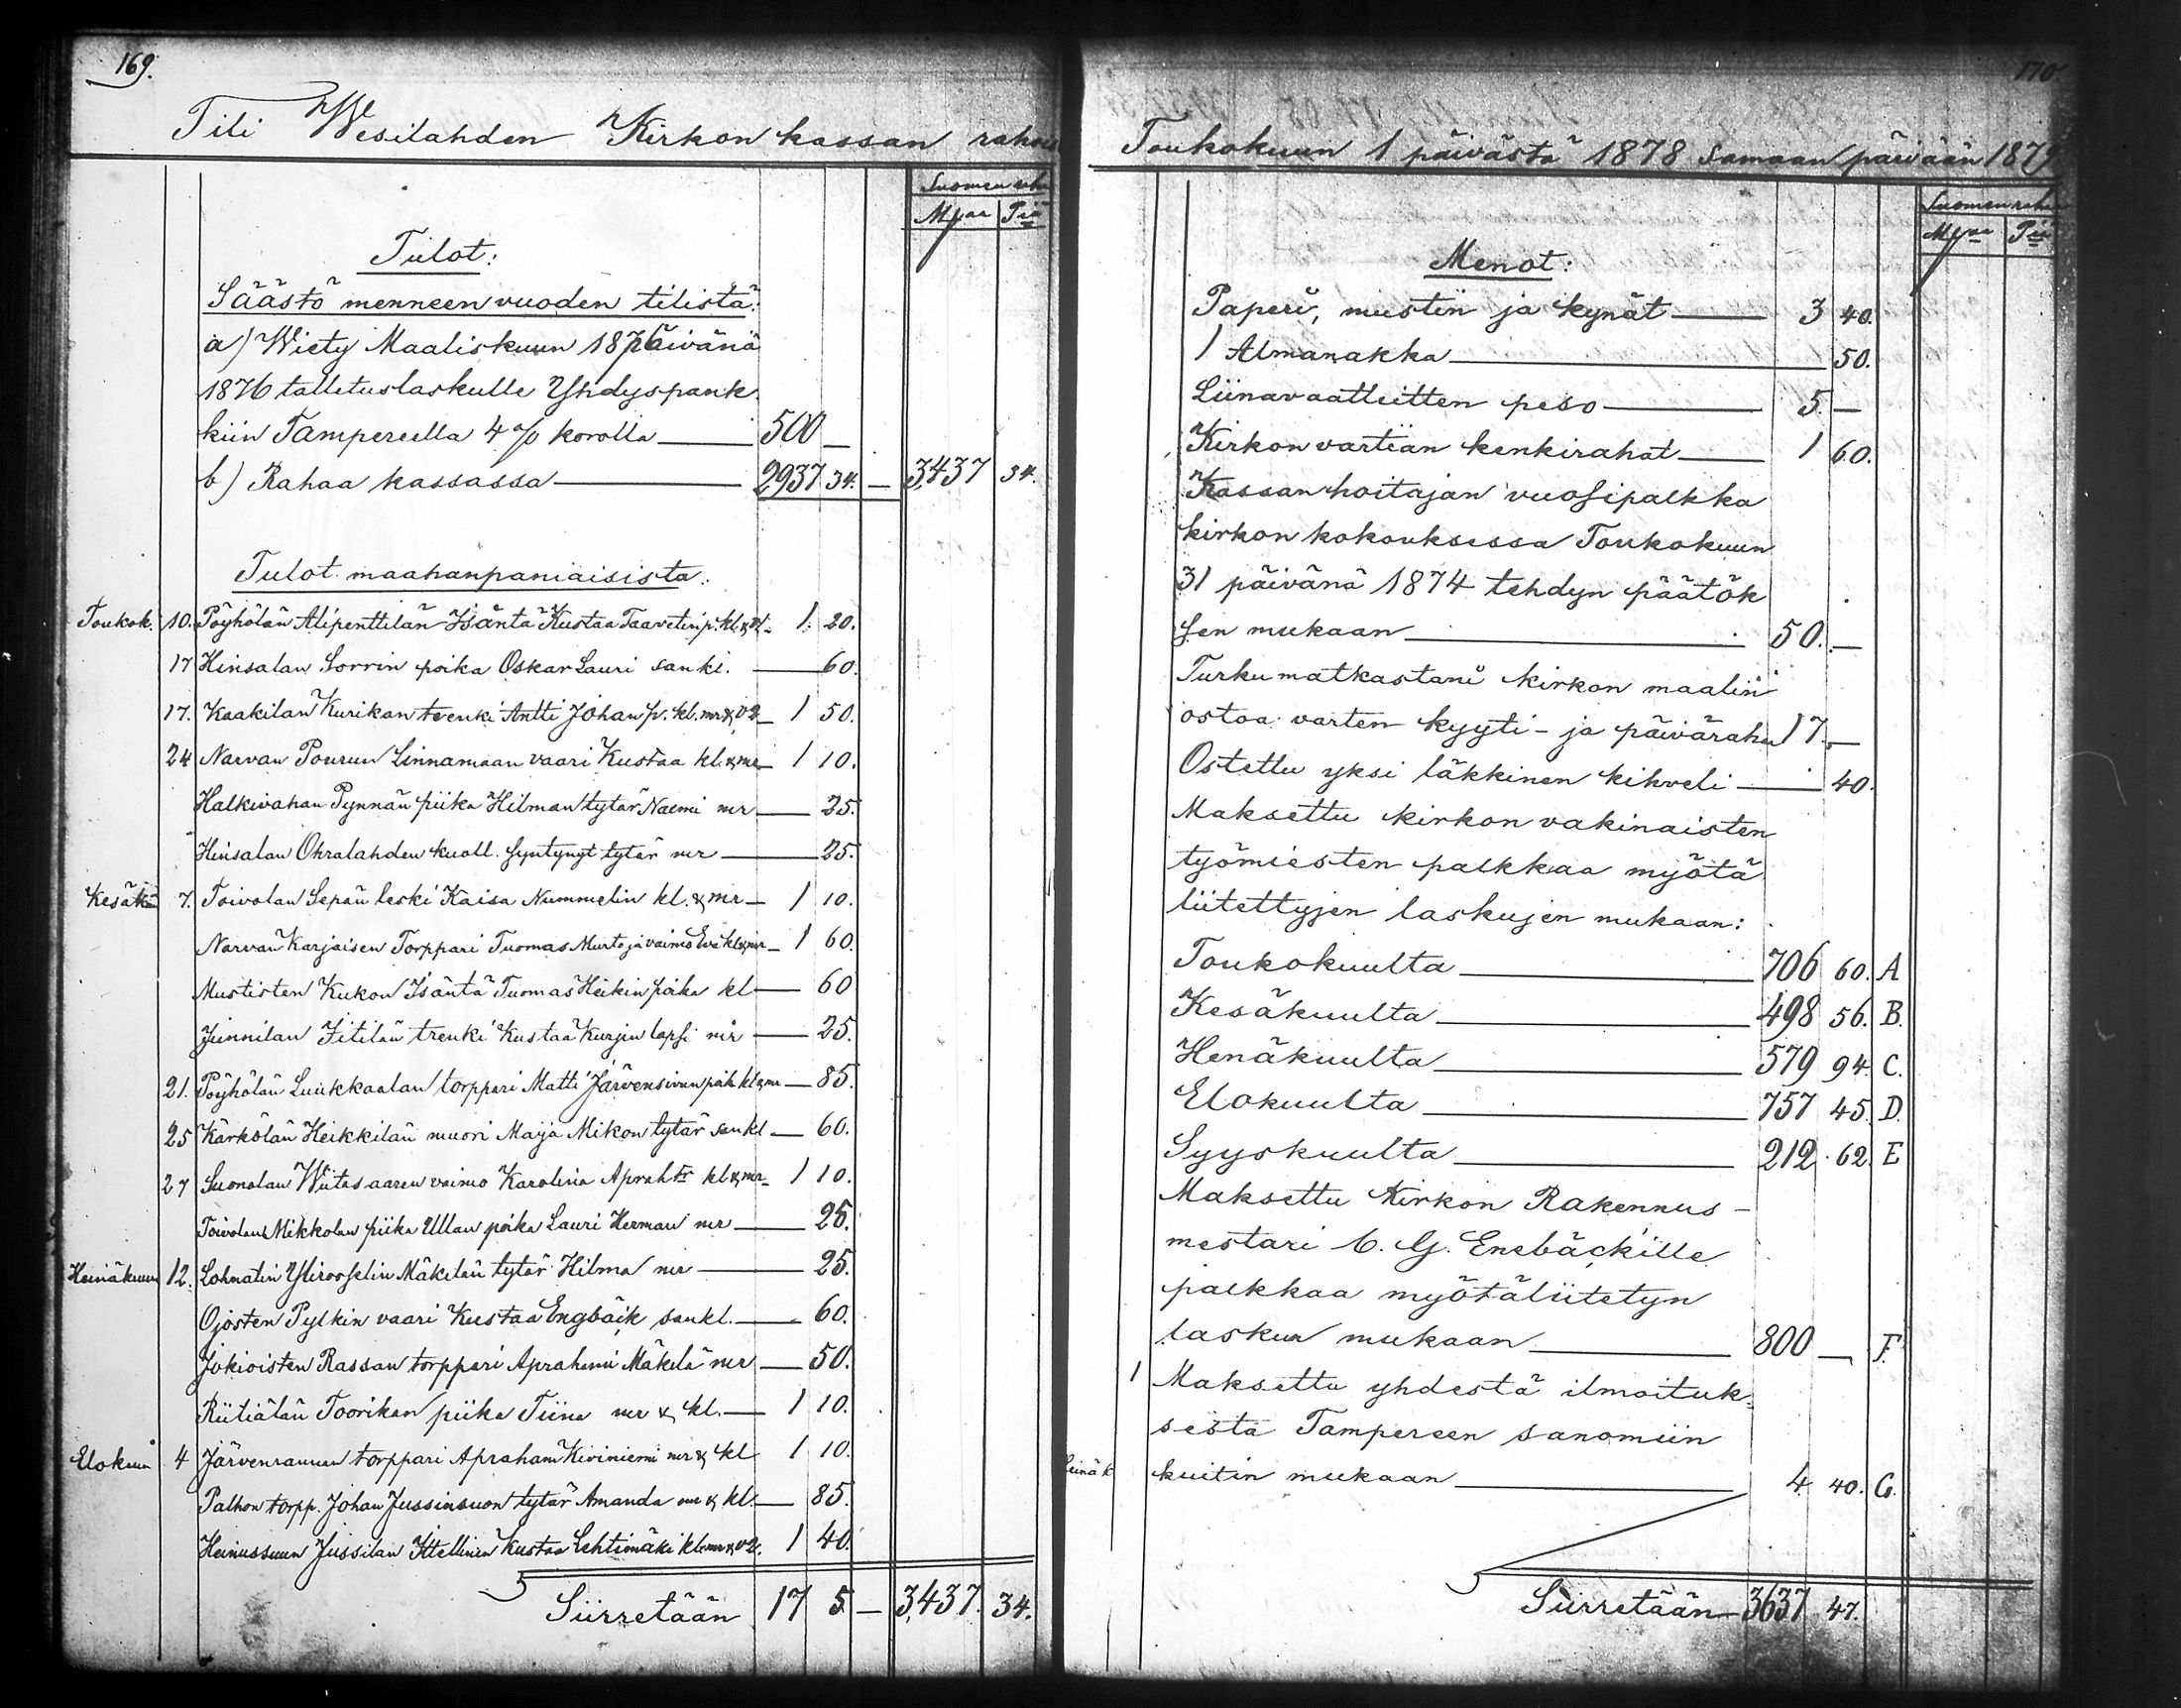 169.
Tili Wesilahden Kirkon kassan rahois
Suomen raha
Mkaa Piä
Tulot:
Säästö menneen vuoden tilistä:
a) Wiety Maaliskuun päivänä
1876 talletuslaskulle Yhdyspank
kiin Tampereella 4 % korolla — 500 —
b) Rahaa kassassa — 2937 34. — 3,437 34.
Tulot maahanpaniaisista:
Toukok. 10. Pöyhölän Alipenttilän Isäntä Kustaa Taavetin p. kl. & 1. 20.
17 Hinsalan Sorrin poika Oskar Lauri san kl. — 60.
17. Kaakilan Kurikan trenki Antti Johan p. kl. mr & v2 — 1 50.
24 Narvan Pourun Linnamaan vaari Kustaa kl. & mr — 1 10.
Halkivahan Pynnän piika Hilman tytär Naemi mr — 25.
Hinsalan Ohralahden kuoll. syntynyt tytär mr — 25.
Kesäk 7. Toivolan Sepän leski Kaisa Nummelin kl. & mr — 1 10.
Narvan Karjaisen Torppari Tuomas Murto ja vaimo Eva kl & mr — 1 60.
Mustisten Kukon Isäntä Tuomas Heikin poika kl — 60
Junnilan Iitilän trenki Kustaa Kurjen lapsi mr — 25.
21. Pöyhölän Luukkaalan torppari Matti Järvensivun poik kl & mr — 85.
25 Kärkölän Heikkilän muori Maija Mikon tytär san kl — 60.
27 Suonolan Wiitasaaren vaimo Karolina Aprah tr kl & mr — 1 10.
Toivolan Mikkolan piika Ullan poika Lauri Herman mr — 25.
Heinäkuun 12. Lohnatin Yliroosselin Mäkelän tytär Hilma mr — 25.
Ojosten Pylkin vaari Kustaa Engbäik san kl. — 60.
Jokioisten Rassan torppari Aprahami Mäkelä mr — 50.
Riitiälän Toorikan piika Tiina mr & kl. — 1 10.
Elokuun 4 Järvenrannan torppari Apraham Kiviniemi mr & kl 1 10.
Palhon torpp. Johan Jussinsuon tytär Amanda mr & kl. — 85.
Heinussuun Jussilan Ittellinen Kustaa Lehtimäki kl. mr & v2. 1 40.
Siirretään 17 5 — 3,437. 34.
170.
Toukokuun 1 päivästä 1878 samaan päivään 1879
Suomen raha
Mkaa Piä
Menot:
Paperi, mustiin ja kynät — 3 40.
1 Almanakka — 50.
Liinavaatteitten peso — 5. —
Kirkonvartian kenkirahat — 1 60.
Kassanhoitajan vuosipalkka
kirkonkokouksessa Toukokuun
31 päivänä 1874 tehdyn päätök
sen mukaan — 50. —
Turku matkastani kirkon maalin
ostoa varten kyyti- ja päiväraha 17. —
Ostettu yksi läkkinen kihveli — 40.
Maksettu kirkon vakinaisten
työmiesten palkkaa myötä
liitettyjen laskujen mukaan:
Toukokuulta — 706 60. A
Kesäkuulta — 498 56. B.
Henäkuulta — 579 94. C.
Elokuulta — 757 45. D.
Syyskuulta — 212. 62. E
Maksettu Kirkon Rakennus-
mestari C. G. Enebäckille
palkkaa myötäliitetyn
laskun mukaan — 800 — F.
1 Maksettu yhdestä ilmoituk
sesta Tampereen sanomiin
Heinäk kuitin mukaan — 4 40. G.
Siirretään — 3637 47.